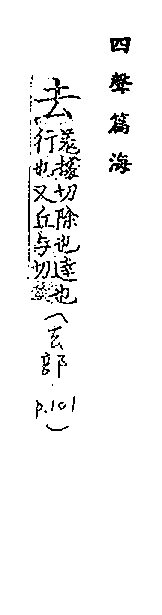 四聲篇海
去
羗據切除也違也
行也又丘与切
(厶部
p.101)